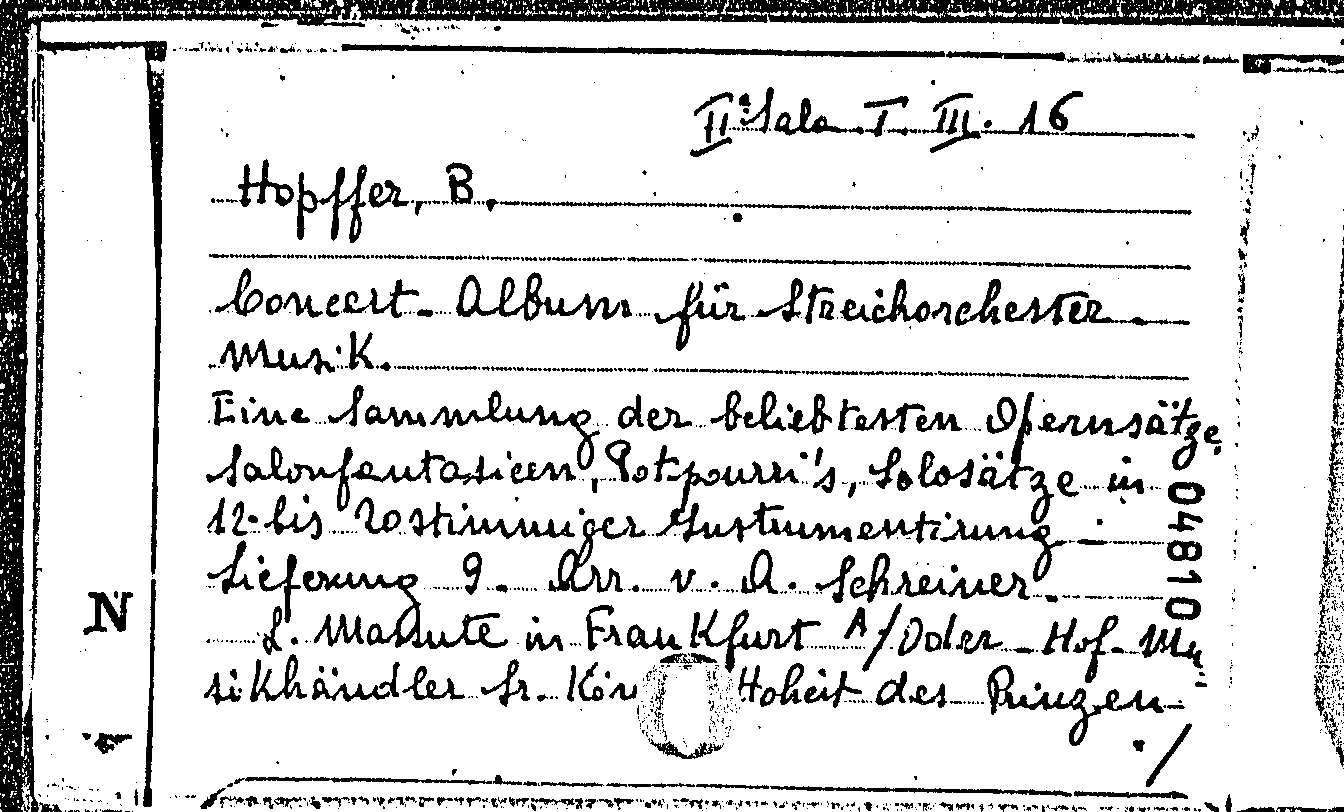 IIª Sala T. III. 16
Hopffer, B.
Concert-Album für Streichorchester-
Musik.
Eine Sammlung der beliebtesten Opernsätze,
Salonfantasieen, Potpourri's, Solosätze in
12-bis 20stimmiger Instrumentirung:
Lieferung 9. Arr. v. A. Schreiner.
L. in Frankfurt A/Oder - Hof-Mu
sikhändler Sr. Kön Hoheit des Prinzen
./
N
04810